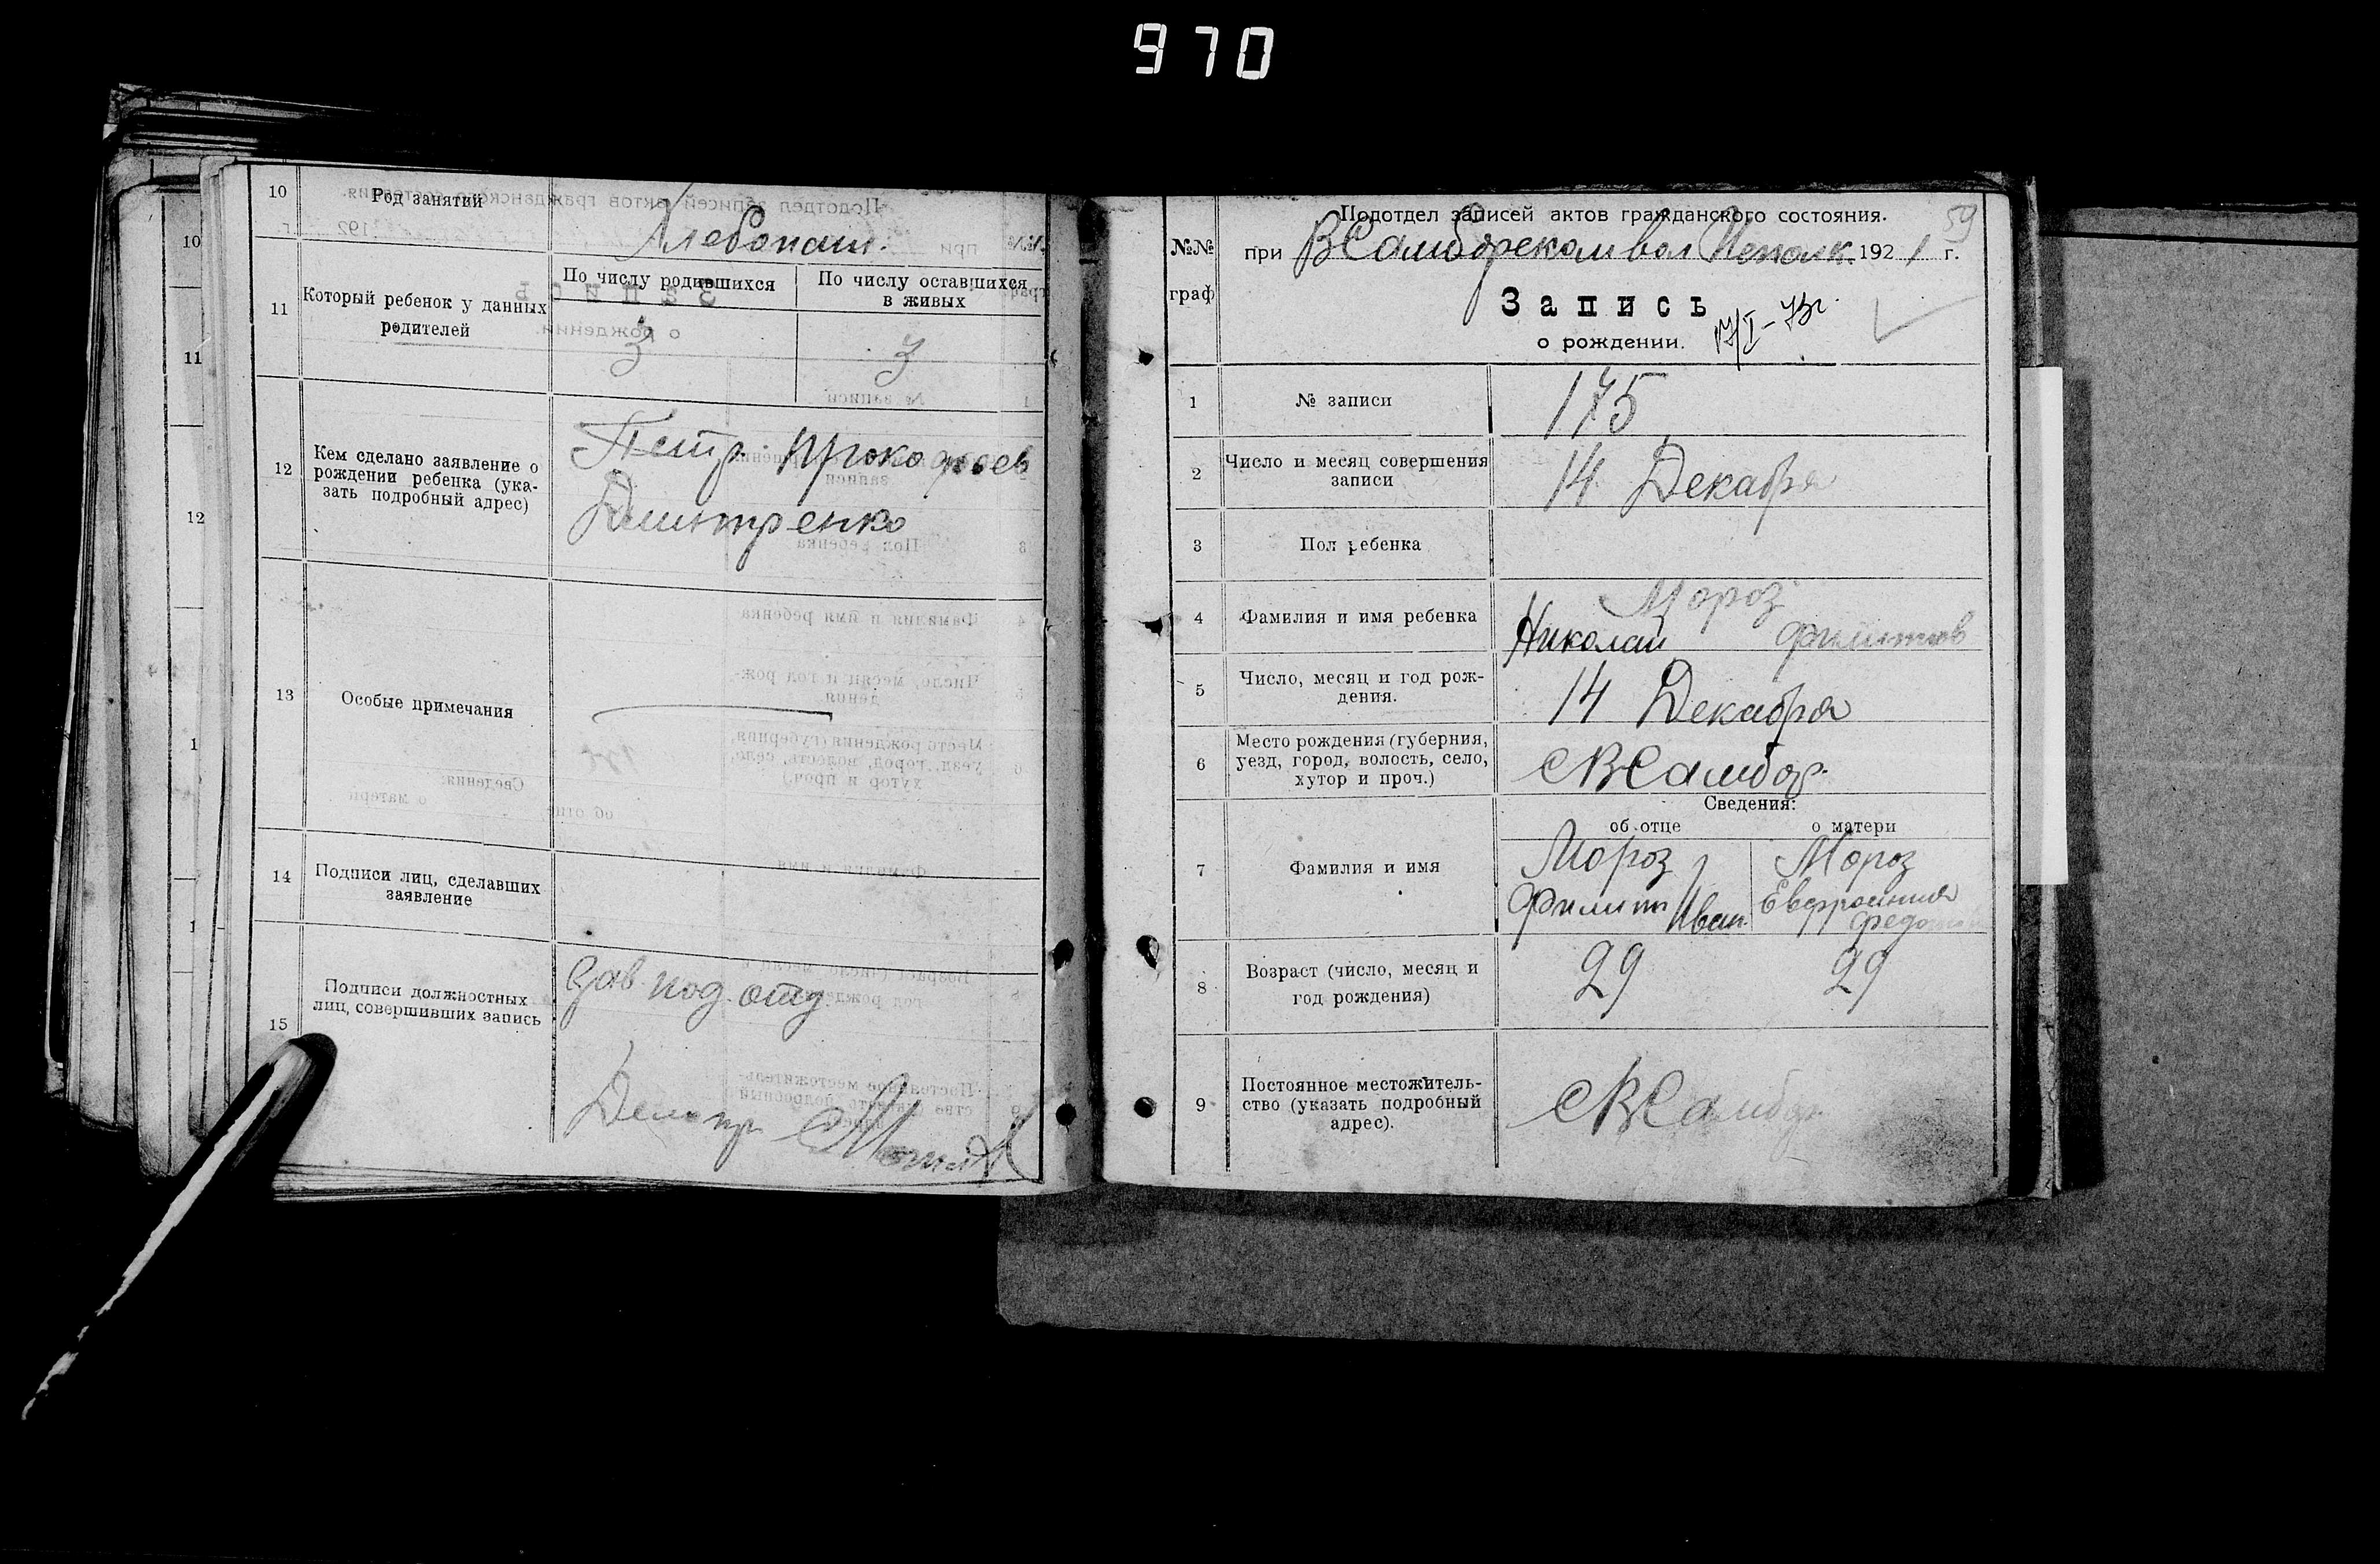 970
10
Род занятий
Хлебопаш.
11
Который ребенок у данных
родителей
По числу родившихся
По числу оставшихся
в живых
3
3
12
Кем сделано заявление о
рождении ребенка (ука-
зать подробный адрес)
Петр Прокофьев
Дмитренко
13
Особые примечания
14
Подписи лиц, сделавших
заявление
15
Подписи должностных
лиц, совершивших запись
Зав. под. отд
10
11
12
59
№№
граф
Подотдел записей актов гражданского состояния.
при ВСамборском вол Исполк. 1921 г.
Запись
о рождении.
17/I-73г.
1
№ записи
175
2
Число и месяц совершения
записи
14 Декабря
3
Пол ребенка
4
Фамилия и имя ребенка
Мороз
Николай Филипов
5
Число, месяц и год рож-
дения.
14 Декабря
6
Место рождения (губерния,
уезд, город, волость, село,
хутор и проч.)
С ВСамбор.
Сведения:
об отце
о матери
7
Фамилия и имя
Мороз
Филип Иван.
Мороз
Евфросиния
8
Возраст (число, месяц и
год рождения)
29
29
9
Постоянное местожитель-
ство (указать подробный
адрес).
С ВСамбор